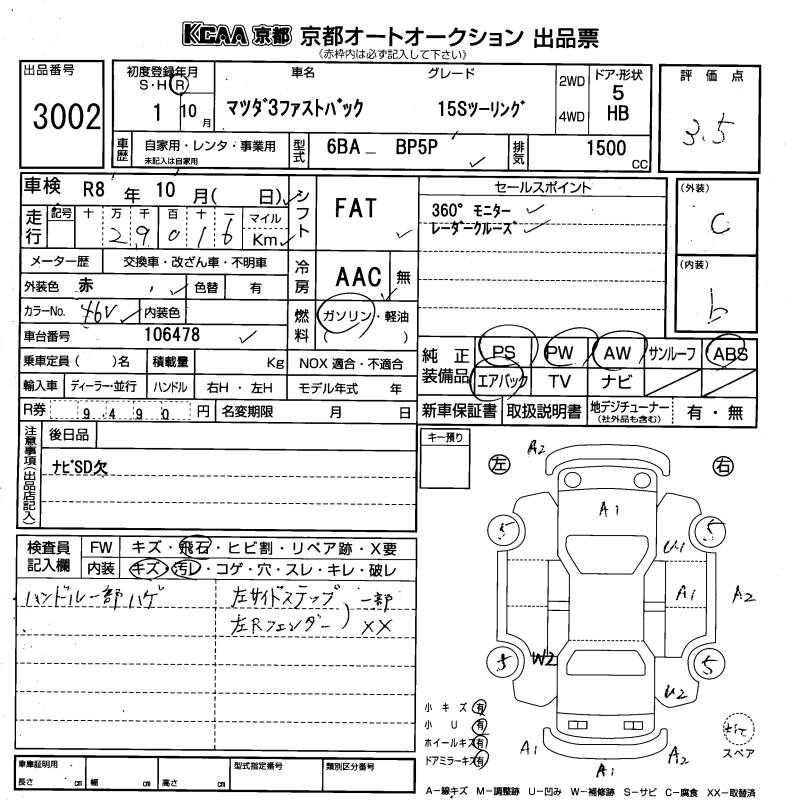 KCAA 京都 京都オートオークション 出品票
《赤枠内は必ず記入して下さい》
出品番号
3002
初度登録年月
S・H・R
1 10月
車名
マツダ3ファストバック
グレード
15Sツーリング
2WD
4WD
ドア・形状
5
HB
評価点
3.5
車歴
自家用・レンタ・事業用
未記入は自家用
型式
6BA BP5P
排気
1500 cc
車検 R8 年 10 月( 日)
シフト
FAT
セールスポイント
360° モニター
レーダークルーズ
(外装)
C
(内装)
b
走行
記号 十 万 千 百 十 一
2 9 0 1 6
マイル
Km
メーター歴 交換車・改ざん車・不明車
冷房
AAC 無
外装色 赤 色替 有
カラーNo. 46V 内装色
燃料
ガソリン・軽油
( )
車台番号 106478
乗車定員( )名 積載量 Kg NOX 適合・不適合
輸入車 ディーラー・並行 ハンドル 右H・左H モデル年式 年
R券 9490 円 名変期限 月 日
純正装備品
PS PW AW サンルーフ ABS
エアバック TV ナビ
新車保証書 取扱説明書 地デジチューナー(社外品も含む) 有・無
注意事項(出品店記入)
後日品
ナビSD欠
キー預り
検査員記入欄
FW キズ・飛石・ヒビ割・リペア跡・X要
内装 キズ・汚レ・コゲ・穴・スレ・キレ・破レ
ハンドル一部ハゲ
左サイドステップ
左Rフェンダー
) 一部
XX
左 右
A2
A1
5 5
U1
A1 A2
W2
5 5
U2
A1 A1 A2
小キズ 有
小U 有
ホイールキズ 有
ドアミラーキズ 有
スペア
車庫証明用
長さ cm 幅 cm 高さ cm
型式指定番号
類別区分番号
A−線キズ M−調整跡 U−凹み W−補修跡 S−サビ C−腐食 XX−取替済